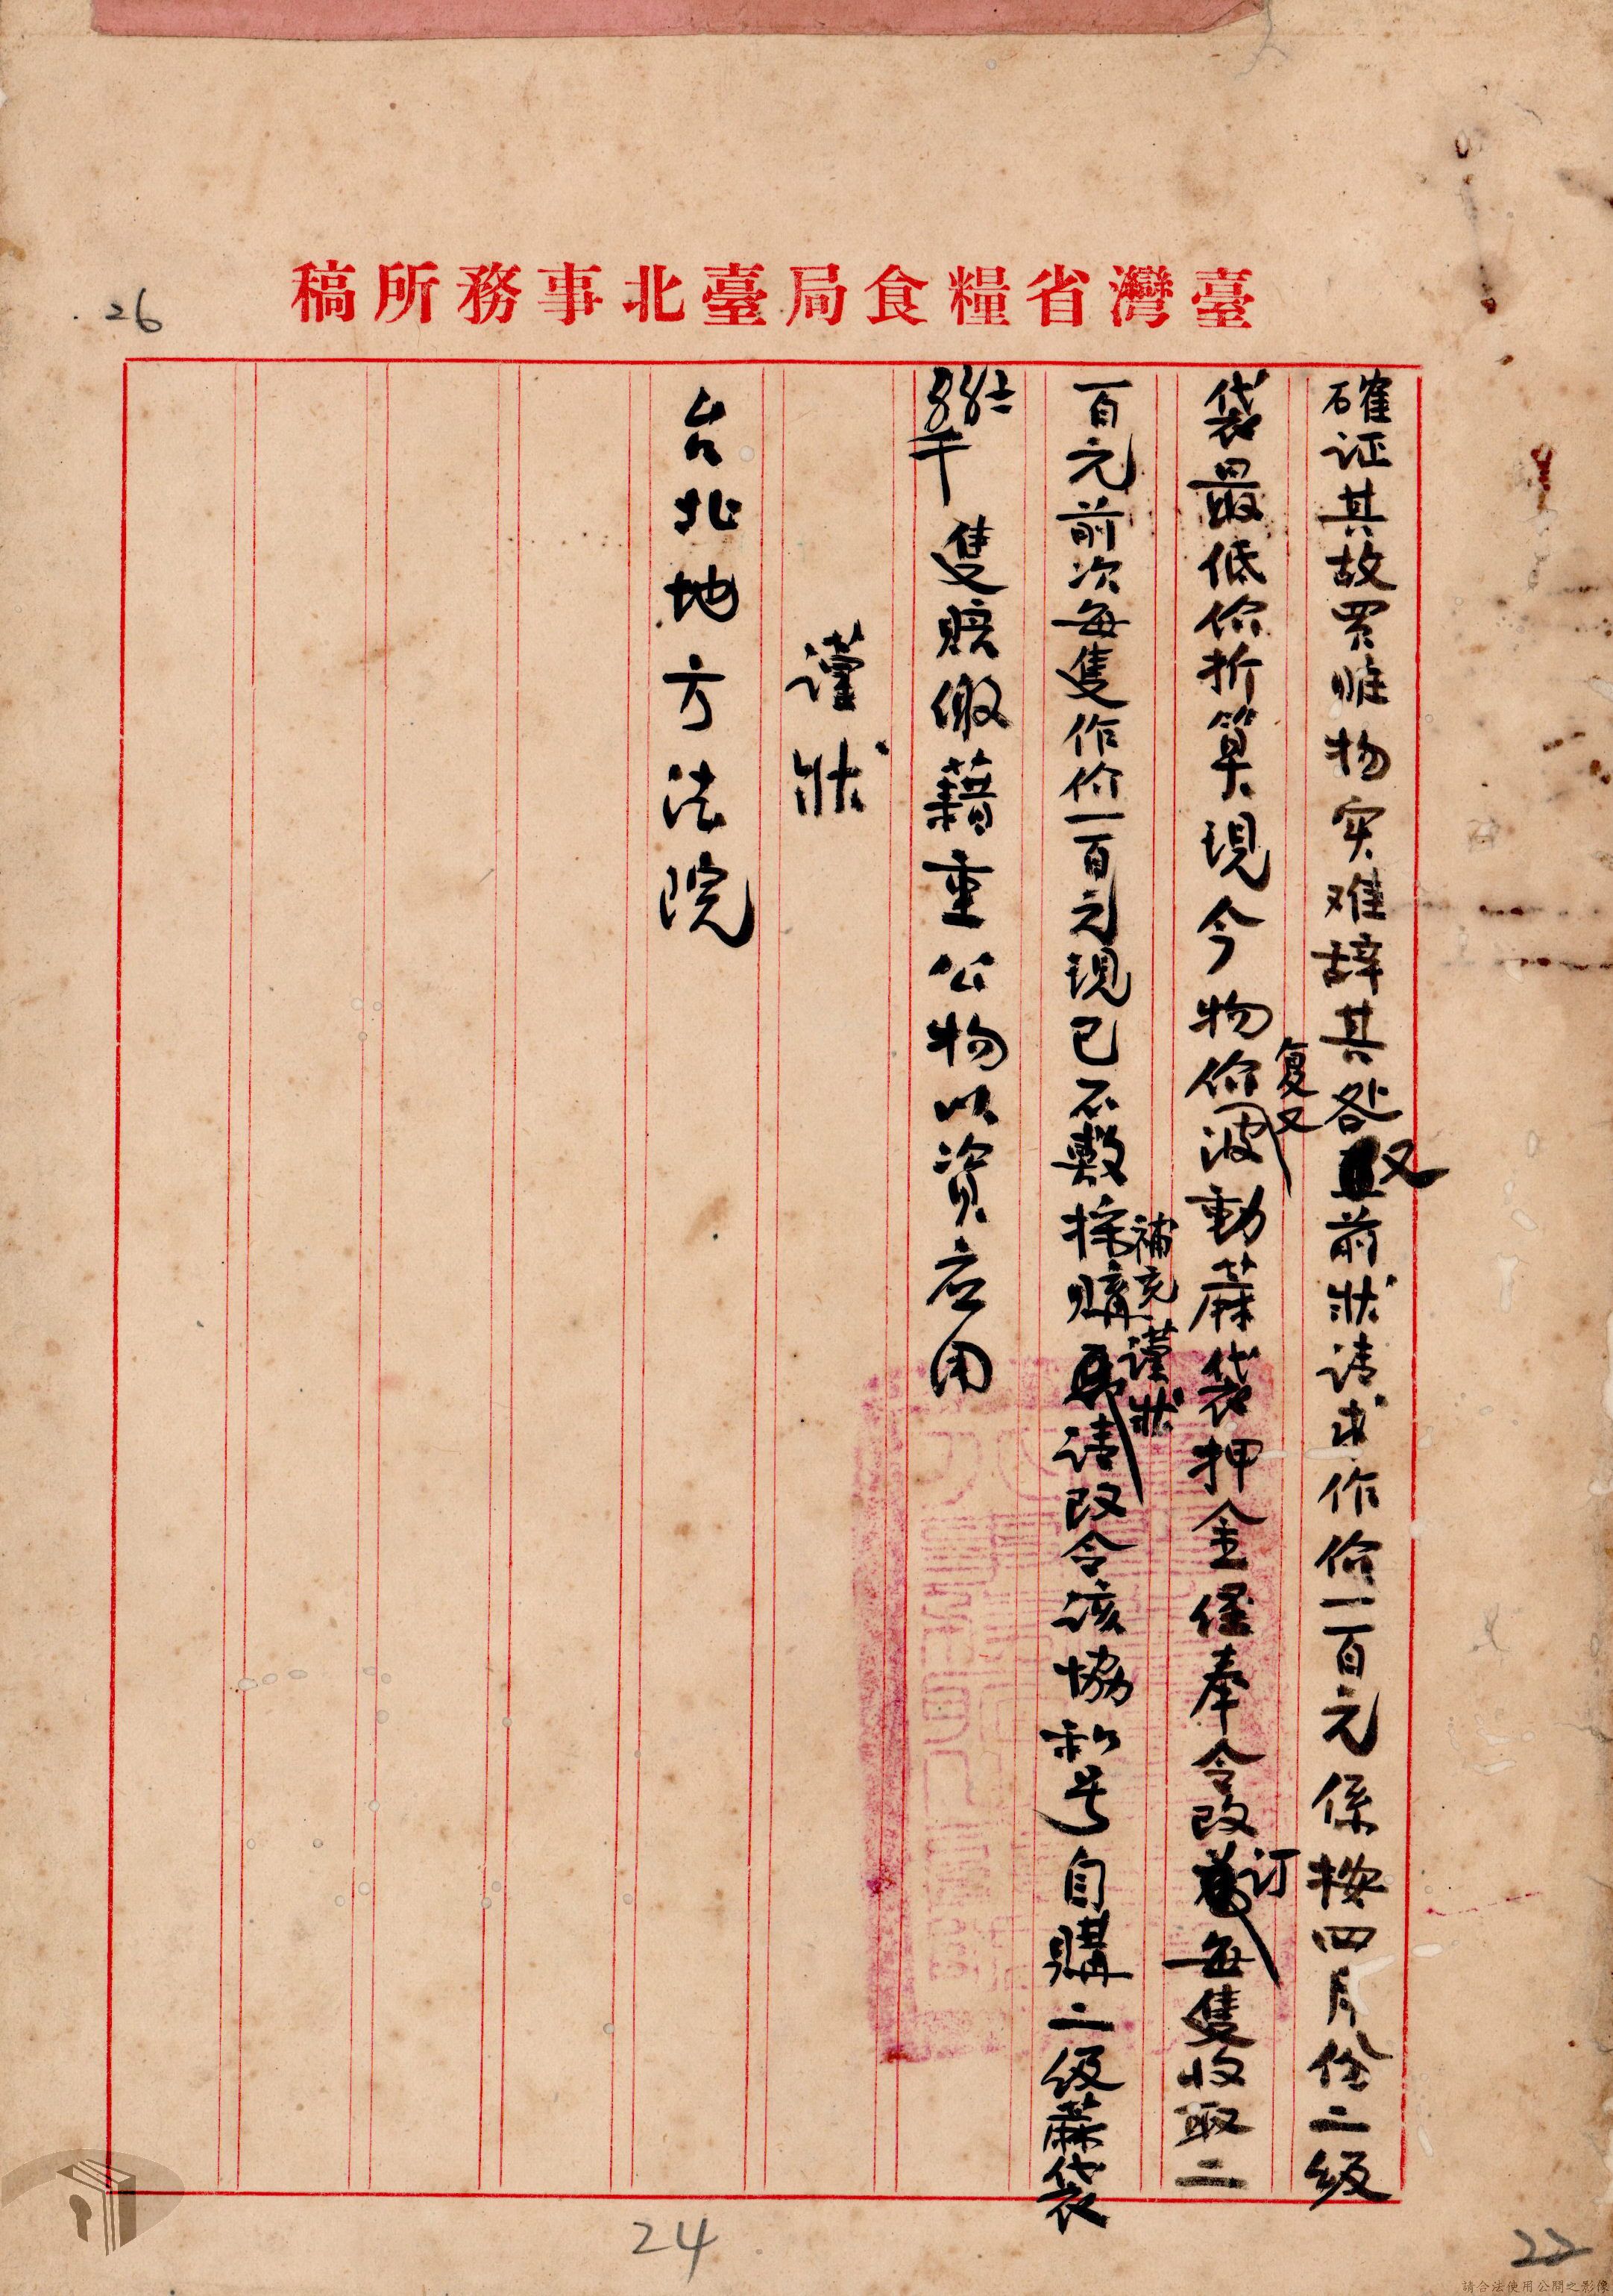 臺灣省糧食局臺北事務所稿
26
確证其故買賍物实难辞其咎又前狀请求作价一百元係按四月份二級
袋最低价折算現今物价复又波動蔴袋押金僅奉令改订每隻收取二
百元前次每隻作价一百元現已不敷採購補充謹狀请改令该協和号自購二級蔴袋
千隻賠繳藉重公物以资应用
謹狀
台北地方法院
24
22
請合法使用公開之影像